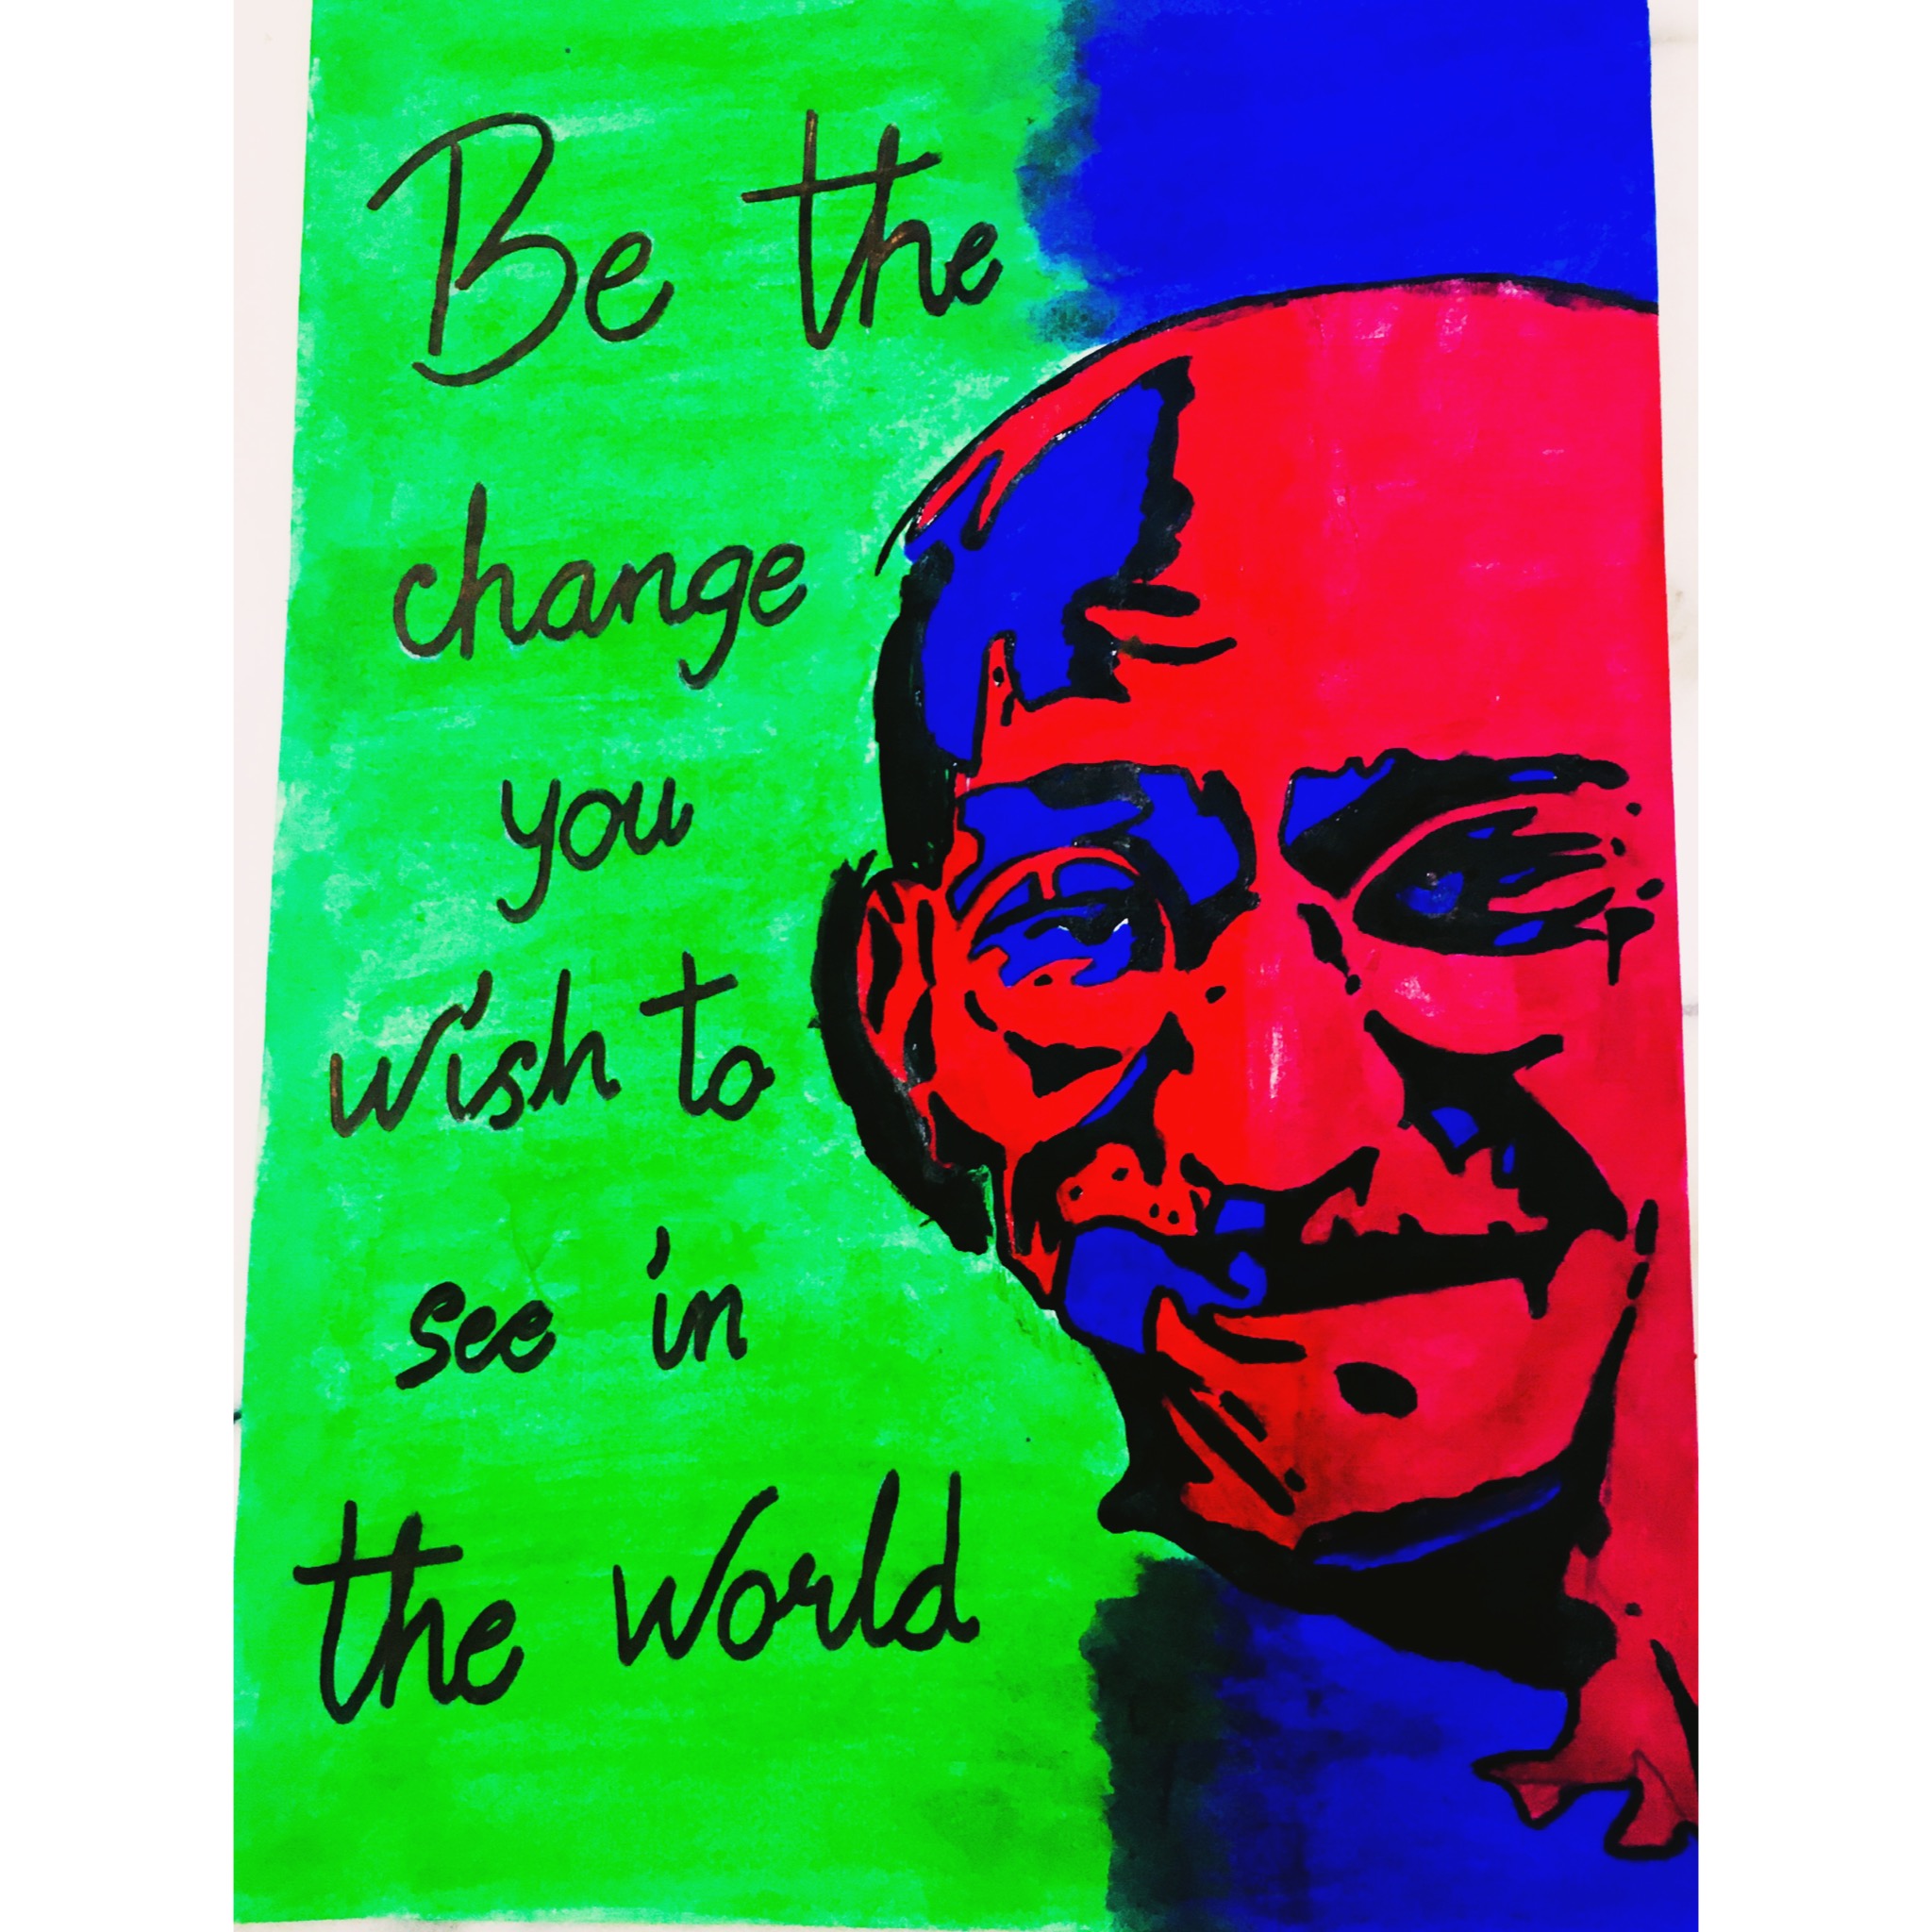 Be the
change
you
wish to
see in
the world